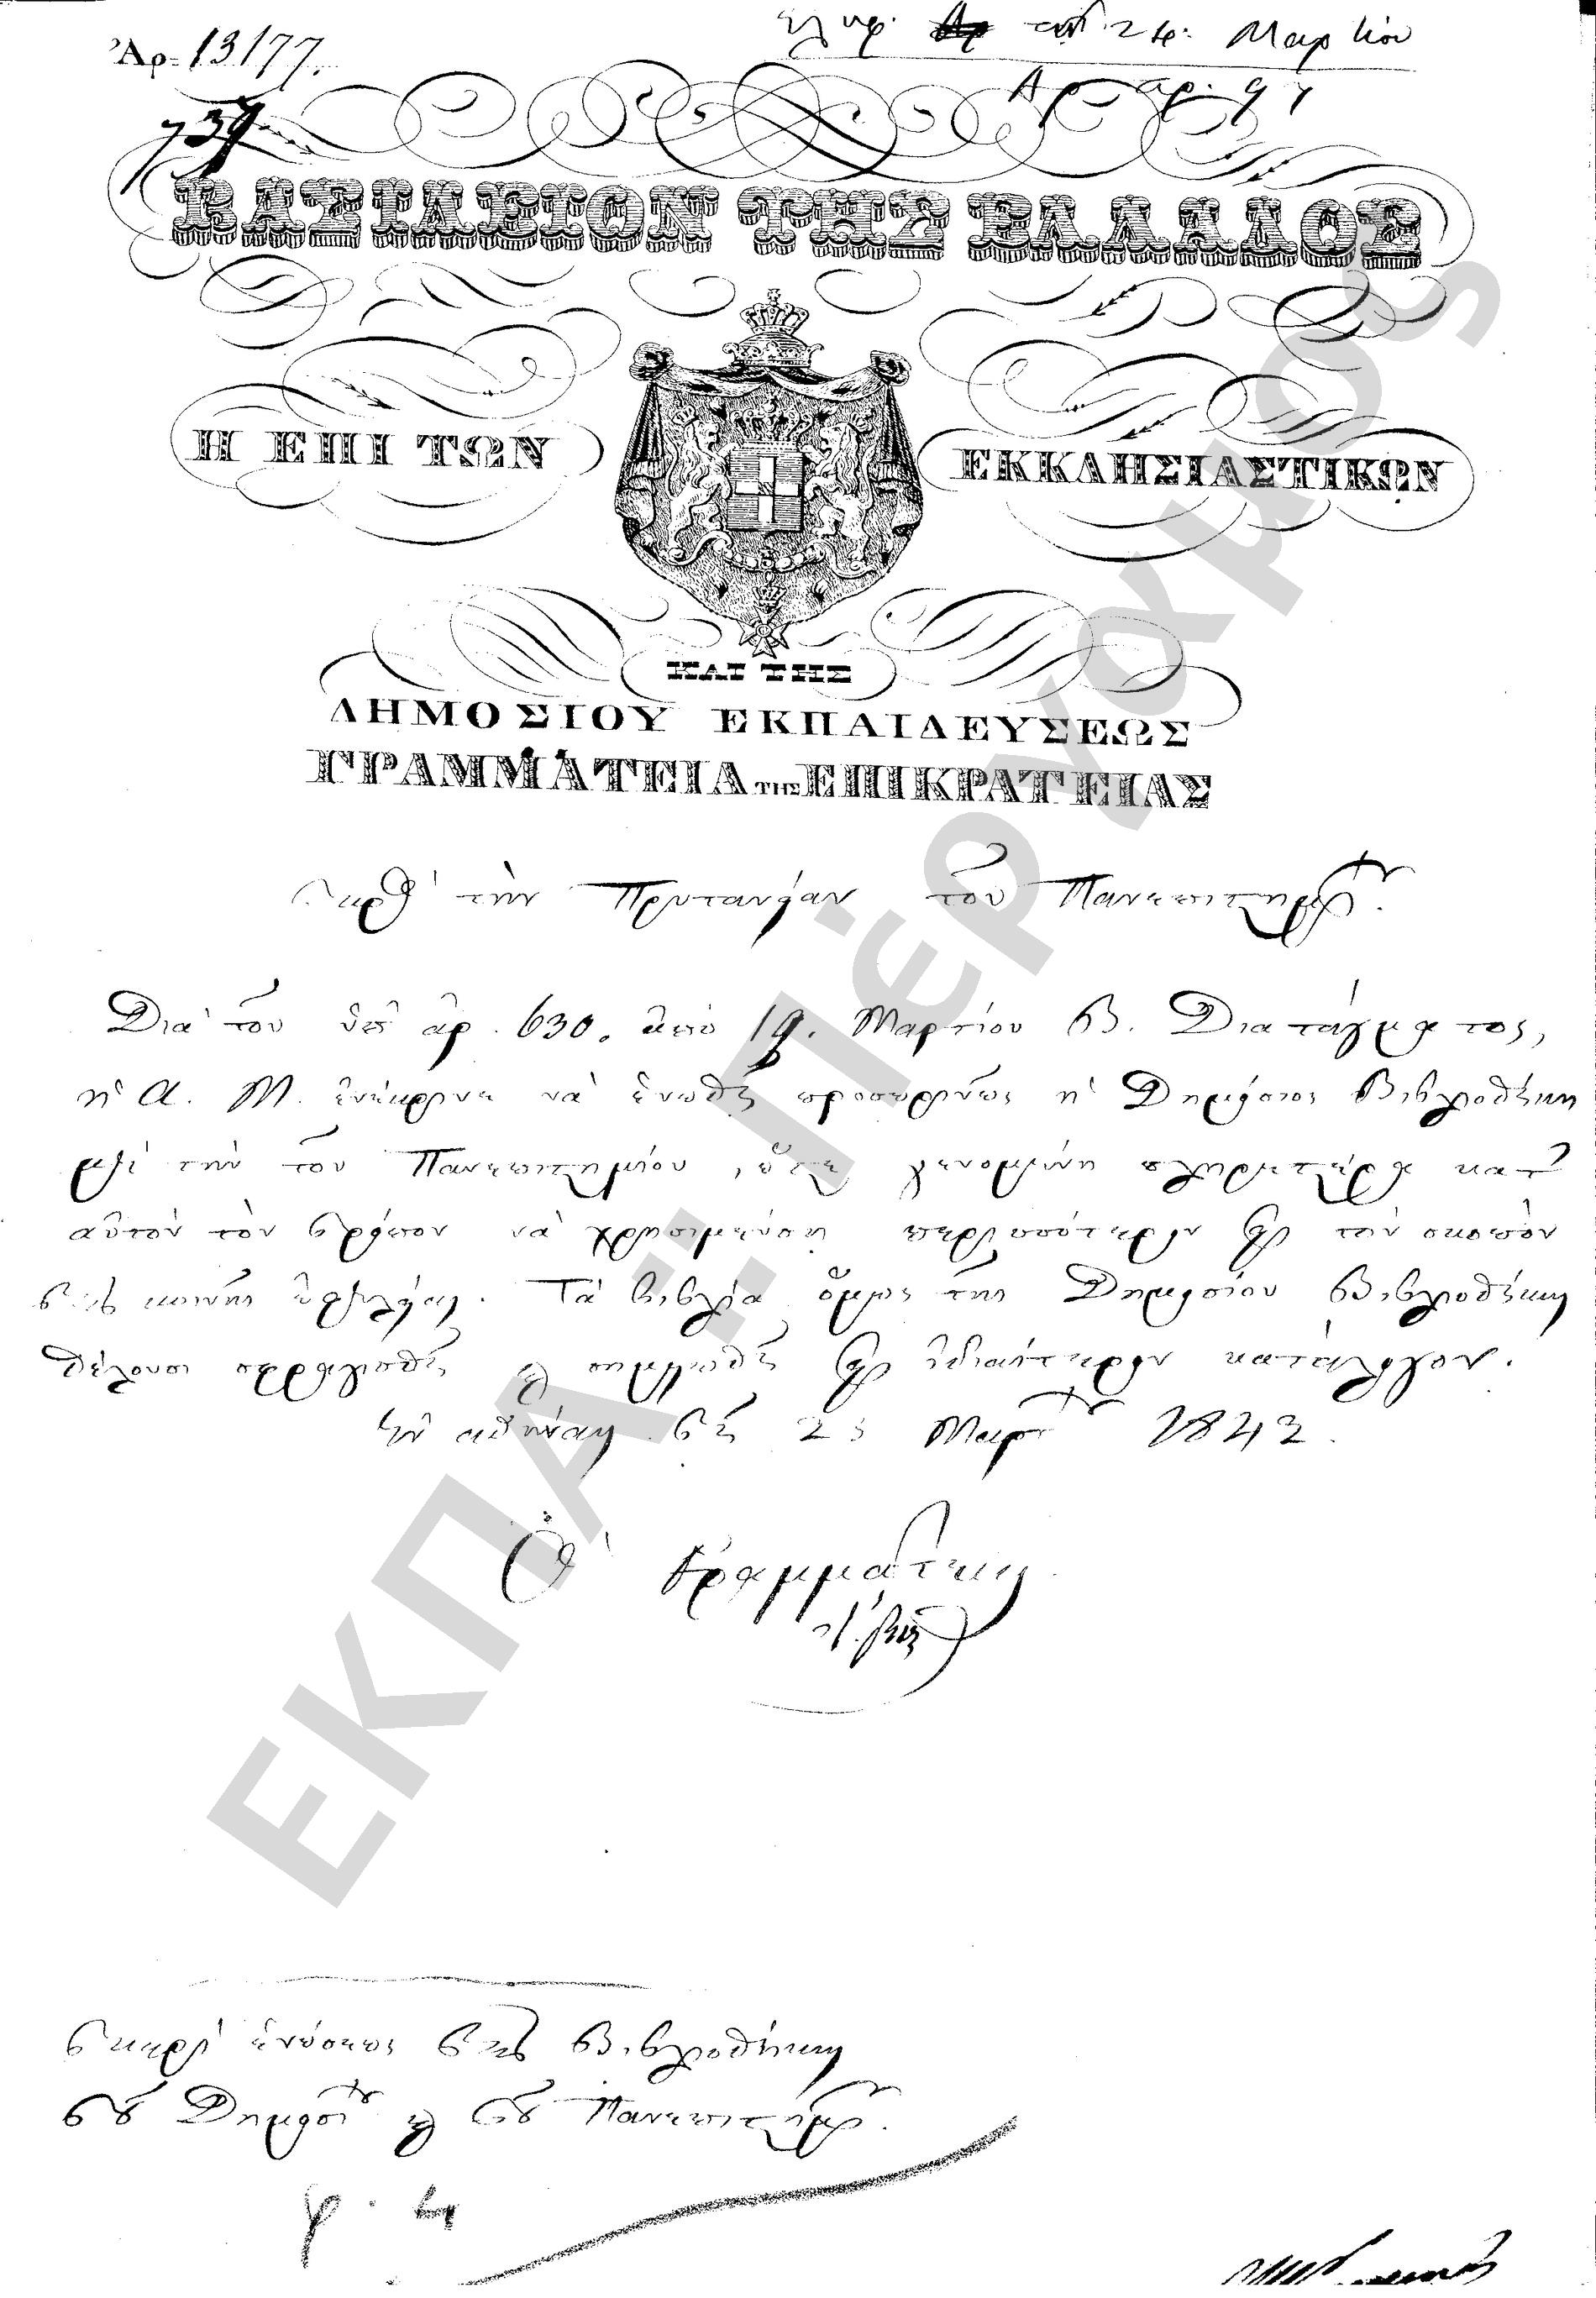 Ἀρ. 13177.
24 Μαρτίου
ἀρ. 97
739
ΒΑΣΙΛΕΙΟΝ ΤΗΣ ΕΛΛΑΔΟΣ
Η ΕΠΙ ΤΩΝ ΕΚΚΛΗΣΙΑΣΤΙΚΩΝ
ΚΑΙ ΤΗΣ
ΔΗΜΟΣΙΟΥ ΕΚΠΑΙΔΕΥΣΕΩΣ
ΓΡΑΜΜΑΤΕΙΑ ΤΗΣ ΕΠΙΚΡΑΤΕΙΑΣ
Πρὸς τὴν Πρυτανείαν τοῦ Πανεπιστημίου.
Διὰ τοῦ ὑπ' ἀρ. 630. ἀπὸ 19. Μαρτίου Β. Διατάγματος,
ἡ Α. Μ. ἐνέκρινε νὰ ἑνωθῇ προσωρινῶς ἡ Δημόσιος Βιβλιοθήκη
μὲ τὴν τοῦ Πανεπιστημίου, ὥστε γενομένη πληρεστέρα κατ'
αὐτὸν τὸν τρόπον νὰ χρησιμεύσῃ περισσότερον εἰς τὸν σκοπὸν
τῆς κοινῆς ὠφελείας. Τὰ βιβλία ὅμως τῆς Δημοσίου Βιβλιοθήκης
θέλουσι σφραγισθῆ καὶ σημειωθῆ εἰς ἰδιαίτερον κατάλογον.
Ἐν Ἀθήναις τῇ 23 Μαρτίου 1842.
Ὁ Γραμματεὺς
περὶ ἑνώσεως τῆς Βιβλιοθήκης
τοῦ Δημοσίου καὶ τοῦ Πανεπιστημίου.
φ. 4
ΕΚΠΑ: Πέργαμος